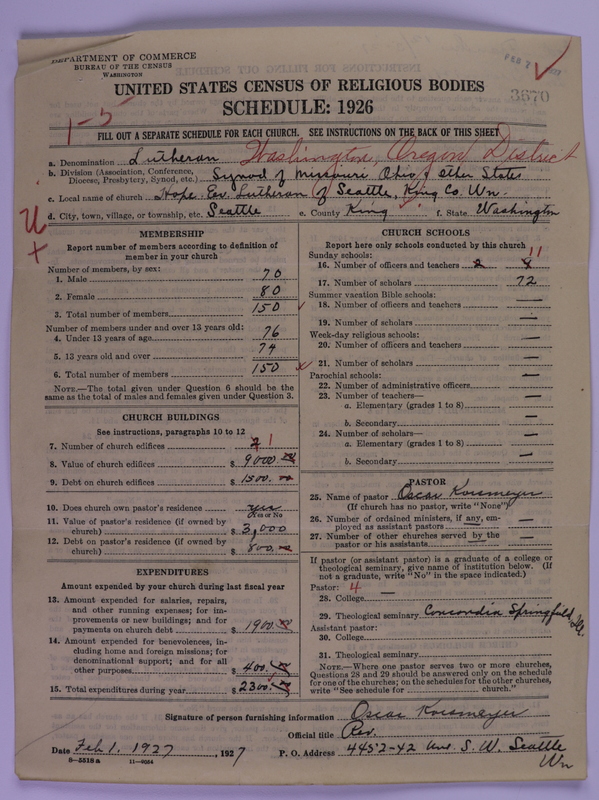 DEPARTMENT OF COMMERCE
BUREAU OF THE CENSUS
WASHINGTON
FEB 7
3670
UNITED STATES CENSUS OF RELIGIOUS BODIES
SCHEDULE: 1926
1-5
FILL OUT A SEPARATE SCHEDULE FOR EACH CHURCH. SEE INSTRUCTIONS ON THE BACK OF THIS SHEET
a. Denomination Lutheran Washington, Oregon District
b. Division (Association, Conference, Diocese, Presbytery, Synod, etc.) Synod of Missouri Ohio & other States
c. Local name of church Hope Ev. Lutheran of Seattle, King Co. Wn.
d. City, town, village, or township, etc. Seattle e. County King f. State Washington
MEMBERSHIP
Report number of members according to definition of
member in your church
Number of members, by sex:
1. Male 70
2. Female 80
3. Total number of members 150
Number of members under and over 13 years old:
4. Under 13 years of age 76
5. 13 years old and over 74
6. Total number of members 150
NOTE.—The total given under Question 6 should be the
same as the total of males and females given under Question 3.
CHURCH BUILDINGS
See instructions, paragraphs 10 to 12
7. Number of church edifices 2 1
8. Value of church edifices $ 9000.
9. Debt on church edifices $ 1500.
10. Does church own pastor's residence yes
Yes or No
11. Value of pastor's residence (if owned by
church) $ 3,000
12. Debt on pastor's residence (if owned by
church) $ 800.
EXPENDITURES
Amount expended by your church during last fiscal year
13. Amount expended for salaries, repairs,
and other running expenses; for im-
provements or new buildings; and for
payments on church debt $ 1900.
14. Amount expended for benevolences, in-
cluding home and foreign missions; for
denominational support; and for all
other purposes $ 400.
15. Total expenditures during year $ 2300.
CHURCH SCHOOLS
Report here only schools conducted by this church
Sunday schools: 11
16. Number of officers and teachers
17. Number of scholars 72
Summer vacation Bible schools:
18. Number of officers and teachers —
19. Number of scholars —
Week-day religious schools:
20. Number of officers and teachers —
21. Number of scholars —
Parochial schools:
22. Number of administrative officers —
23. Number of teachers—
a. Elementary (grades 1 to 8) —
b. Secondary —
24. Number of scholars—
a. Elementary (grades 1 to 8) —
b. Secondary —
PASTOR
25. Name of pastor Oscar Korsmeyer
(If church has no pastor, write "None")
26. Number of ordained ministers, if any, em-
ployed as assistant pastors —
27. Number of other churches served by the
pastor or his assistants —
If pastor (or assistant pastor) is a graduate of a college or
theological seminary, give name of institution below. (If
not a graduate, write "No" in the space indicated.)
Pastor: 4
28. College —
29. Theological seminary Concordia Springfield Ill.
Assistant pastor:
30. College
31. Theological seminary
NOTE.—Where one pastor serves two or more churches,
Questions 28 and 29 should be answered only on the schedule
for one of the churches; on the schedules for the other churches,
write "See schedule for church."
Signature of person furnishing information Oscar Korsmeyer
Official title Rev.
Date Feb 1. 1927, 1927 P. O. Address 4452-42 Ave. S. W. Seattle
Wn
8—5518 a